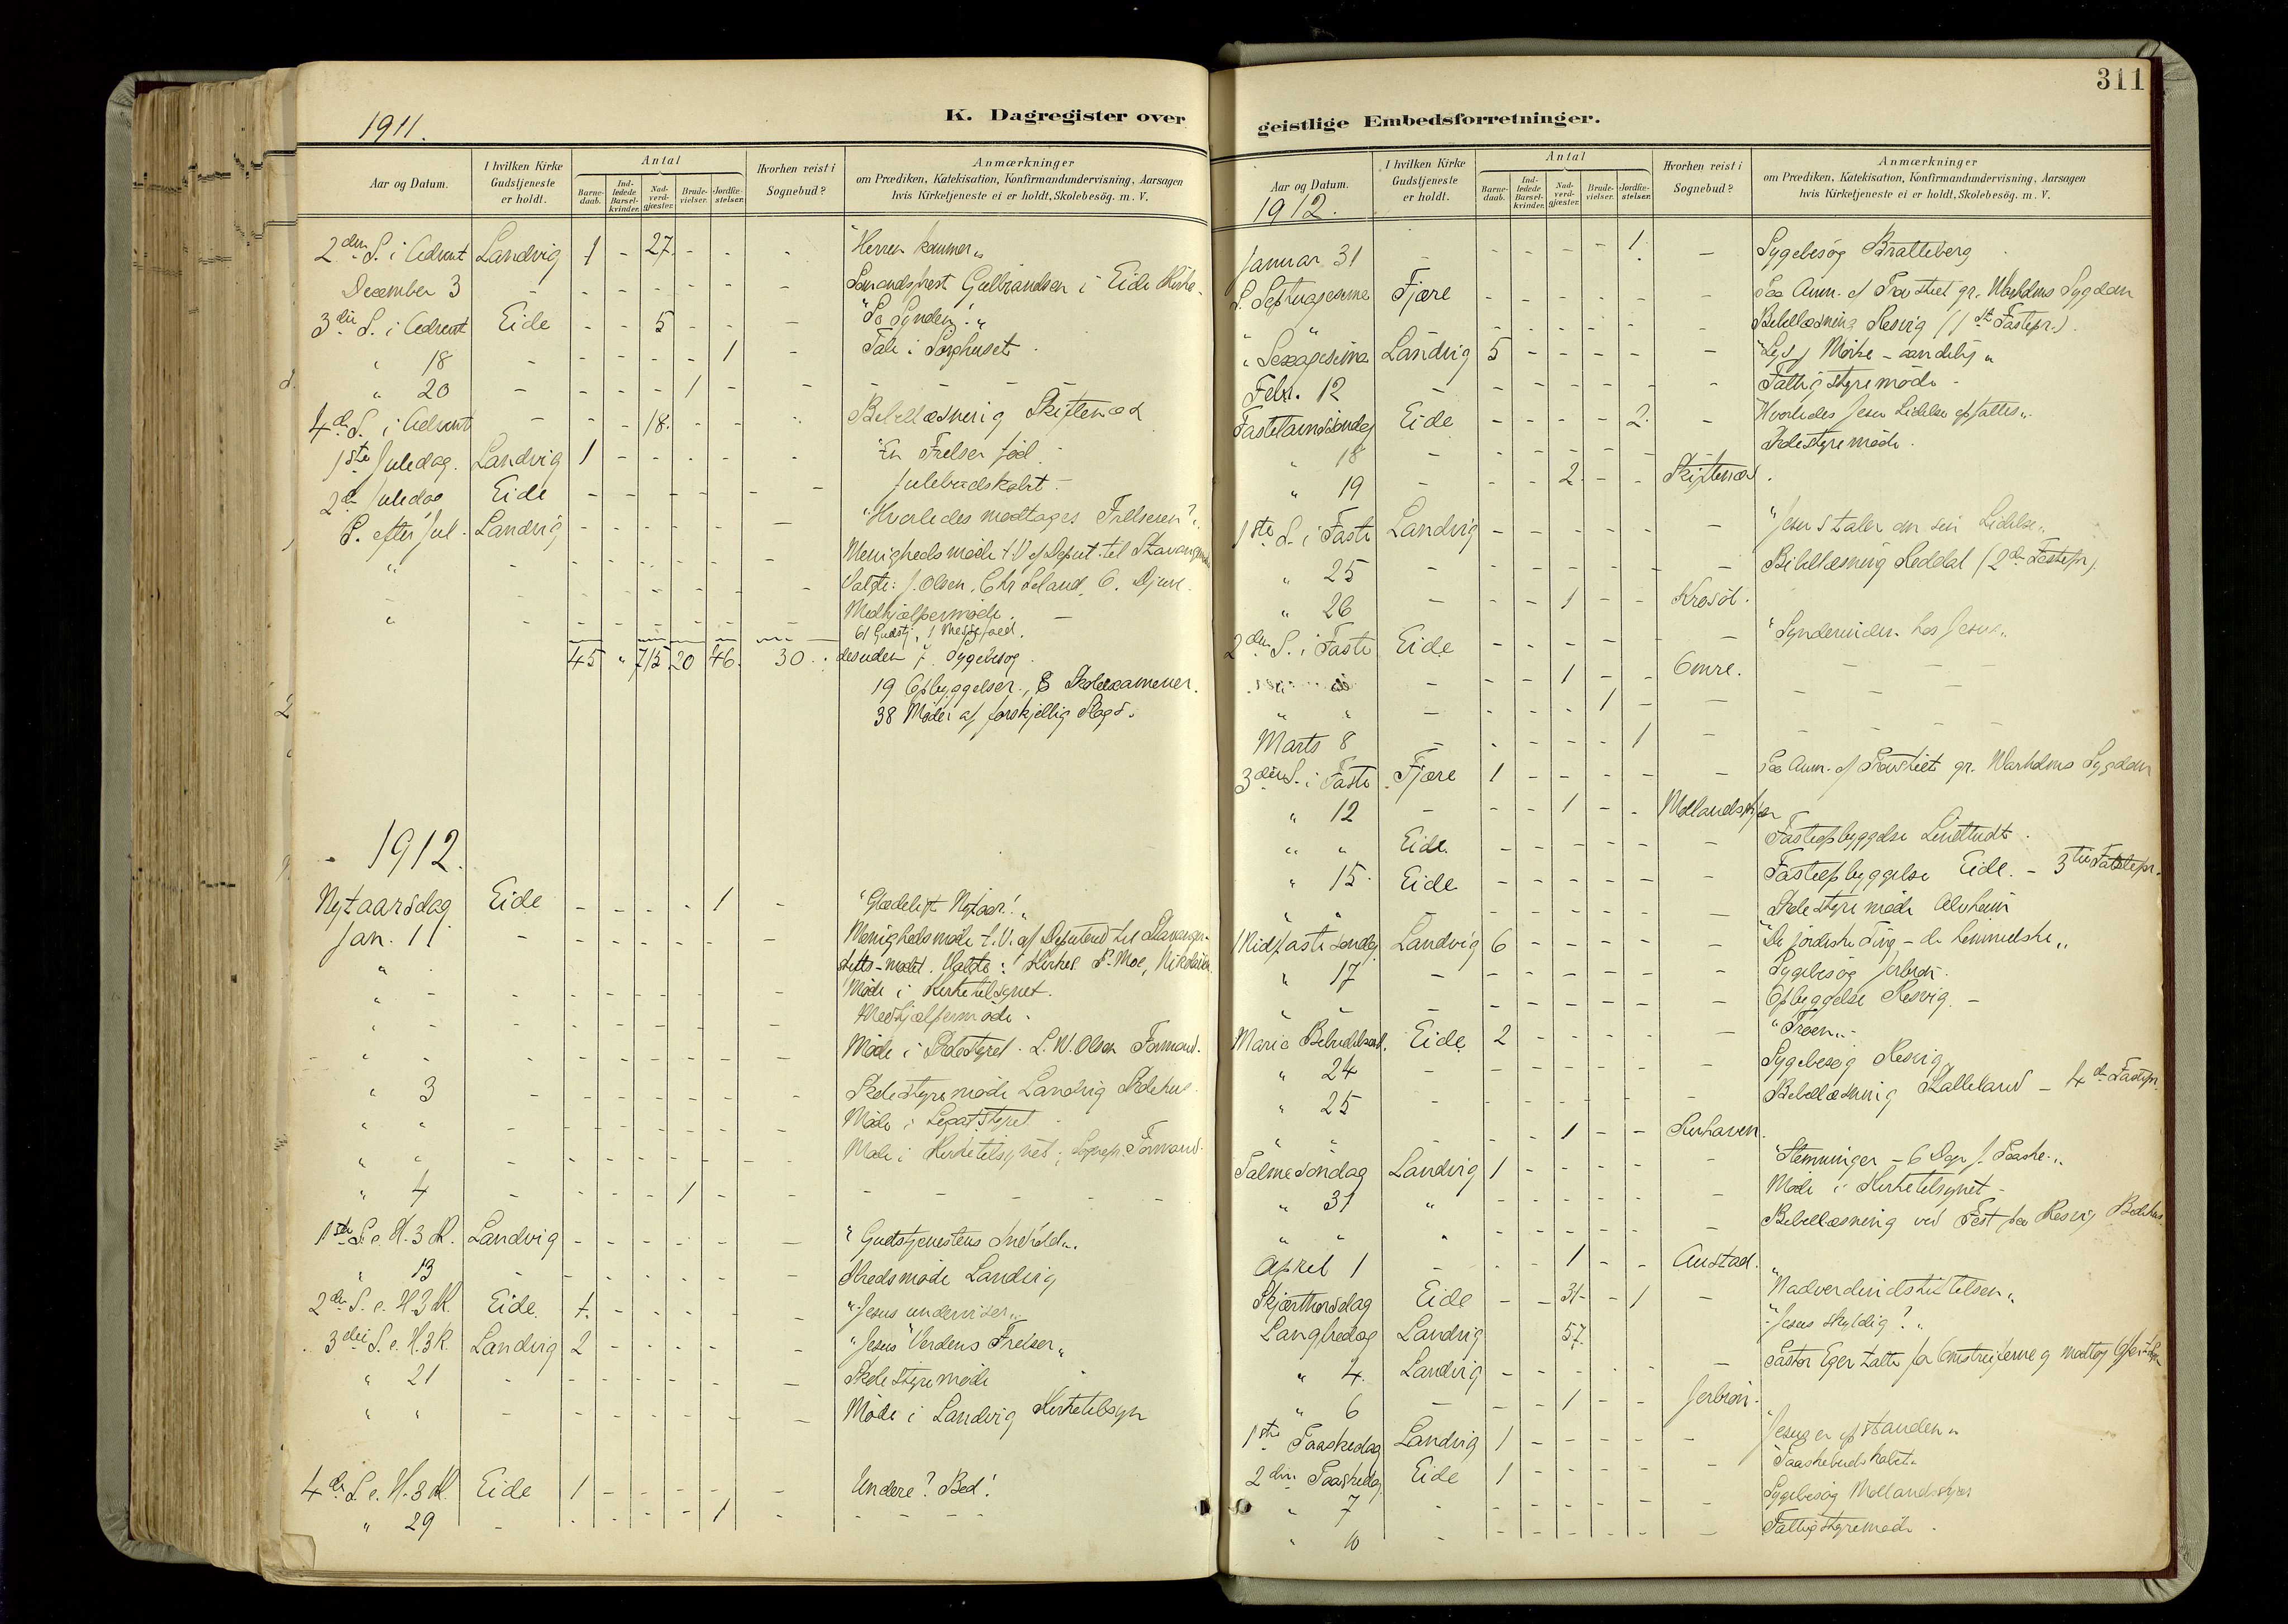 1911.
K. Dagregister over
Aar og Datum.
I hvilken Kirke Gudstjeneste er holdt.
Antal
Barnedaab.
Indledede Barselkvinder.
Nadverdgjæster.
Brudevielser.
Jordfæstelser.
Hvorhen reist i Sognebud?
Anmærkninger
om Prædiken, Katekisation, Konfirmandundervisning, Aarsagen
hvis Kirketjeneste ei er holdt, Skolebesög. m. V.
2den S. i Advent Landvig 1 - 27. - - - "Herren kommer"
December 3 - - - - - - - i Eide Kirke
3die S. i Advent Eide - - 5 - - - "Se Synden!"
" 18 - - - - - 1 - Tale i Sørghuset
" 20 - - - - 1 - - -
4de S. i Advent - - - 18. - - - Bibellæsning Skiftenæs
1ste Juledag. Landvig 1 - - - - - "En Frelser født
2den Juledag Eide - - - - - - Julebudskabet -
S. efter Jul. Landvig - - - - - - "Hvorledes modtages Frelseren?"
" - - - - - - Menighedsmøde t. V. af Deput. til
Valgte: J. Olsen, Chr. O. Djuve.
" - - - - - - Medhjælpermøde.
61 Gudstj., 1
45 " 715 20 46. 30. desuden 7 Sygebesøg
19 Opbyggelser, 8 Skoleexamener.
38 Møder af forskjellig Slags.
1912.
Nytaarsdag Eide - - - - 1 - "Glædeligt Nytaar!"
Jan. 11 - - - - - - Menighedsmøde t. V. af til Stavanger
stifts-mødet. Valgte: S. Moe,
" - - - - - - Møde i Kirketilsynet.
" - - - - - - Medhjælpermøde.
" - - - - - - Møde i Skolestyret. L. W. Olsen Formand.
" 3 - - - - - - Skolestyremøde Landvig Skolehus.
" " - - - - - - Møde i Legatstyret
" " - - - - - - Møde i Kirketilsynet; Sognepr. Formand.
" 4 - - - - 1 - - -
1ste S. e. H. 3 K. Landvig - - - - - - "Gudstjenestens Indhold".
" 13 - - - - - - Kredsmøde Landvig
2den S. e. H. 3 K. Eide. 1. - - - - - "Jesus underviser"
3die S. e. H. 3 K. Landvig 2 - - - - - "Jesus Verdens Frelser"
" 21 - - - - - - Skolestyremøde
" " - - - - - - Møde i Landvig Kirketilsyn
4de S. e. H. 3 K. Eide 1 - - - - - Undere? Bed!
" 29 - - - - - 1 - - - -
311
geistlige Embedsforretninger.
Aar og Datum.
1912.
I hvilken Kirke Gudstjeneste er holdt.
Antal
Barnedaab.
Indledede Barselkvinder.
Nadverdgjæster.
Brudevielser.
Jordfæstelser.
Hvorhen reist i Sognebud?
Anmærkninger
om Prædiken, Katekisation, Konfirmandundervisning, Aarsagen
hvis Kirketjeneste ei er holdt, Skolebesög. m. V.
Januar 31 - - - - - 1. - Sygebesøg Bratteberg
S. Septuagesima Fjære - - - - - - Paa Anm. af Provstiet gr. Warholms Sygdom
" " - - - - - - Bibellæsning Resvig (1ste Fastepr.).
" Sexagesima Landvig 5 - - - - - "Lys, Mørke - aandelig"
Febr. 12 - - - - - - Fattigstyremøde -
Fastelavnssøndag Eide - - - - 2. - "Hvorledes Jesu Lidelse opfattes".
" 18 - - - - - - Skolestyremøde.
" 19 - - - 2 - - Skiftenæs.
1ste S. i Faste Landvig - - - - - - "Jesus taler om sin Lidelse"
" 25 - - - - - - Bibellæsning Reddal (2den Fastepr.)
" 26 - - - 1 - - .
2den S. i Faste Eide - - - - - - "Synderinden hos Jesus"
- - - 1 - - Omre. - - -
" " - - - - 1 - - - - -
Marts 8 - - - - - 1 - - - -
3die S. i Faste Fjære 1 - - - - - Paa Anm. af Provstiet gr. Warholms Sygdom
" 12 - - - 1 - - Mollandskjær
" " Eide - - - - - - Fasteopbyggelse
" 15. Eide - - - - - - Fasteopbyggelse Eide. - 3die Fastepr.
" " - - - - - - Skolestyremøde Alvheim
Midfastesøndag Landvig 6 - - - - - "De jordiske Ting - de himmelske"
" 17 - - - - - - Sygebesøg
" " - - - - - - Opbyggelse Resvig. -
Mariæ Budskabsd. Eide 2 - - - - - "Troen" -
" 24 - - - - - - Sygebesøg Resvig
" 25 - - - - - - Bibellæsning - 4de Fastepr.
" - - - 1 - - .
Palmesøndag Landvig 1 - - - - - "Stemninger - 6 Dage f. Paaske."
" 31 " - - - - - - Møde i Kirketilsynet -
" " " - - - - - - Bibellæsning ved Fest paa Resvig Bedehus.
April 1 - - - 1 - - Austad.
Skjærthorsdag Eide - - 31 - 1 - "Nadverdindstiftelsen"
Langfredag Landvig 57. "Jesus skyldig?"
" 4. Landvig - - - - - - Pastor Eger talte for Omstreiferne og modtog
" 6 - - - 1 - - .
1ste Paaskedag Landvig 1 - - - - - "Jesus er opstanden"
2den Paaskedag Eide 1 - - - - - "Paaskebudskabet"
" 7 - - - - - - Sygebesøg Mollandskjær
" 10 - - - - - - Fattigstyremøde.